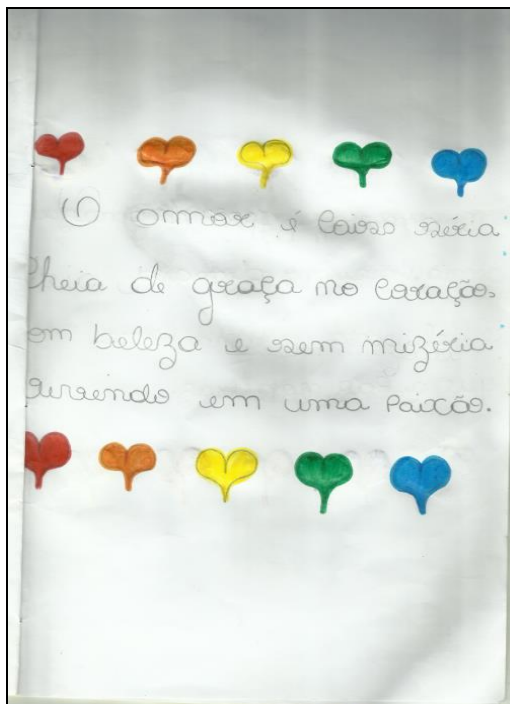 O amar é coisa séria
Cheia de graça no coração,
om beleza e sem mizéria
em uma paixão.